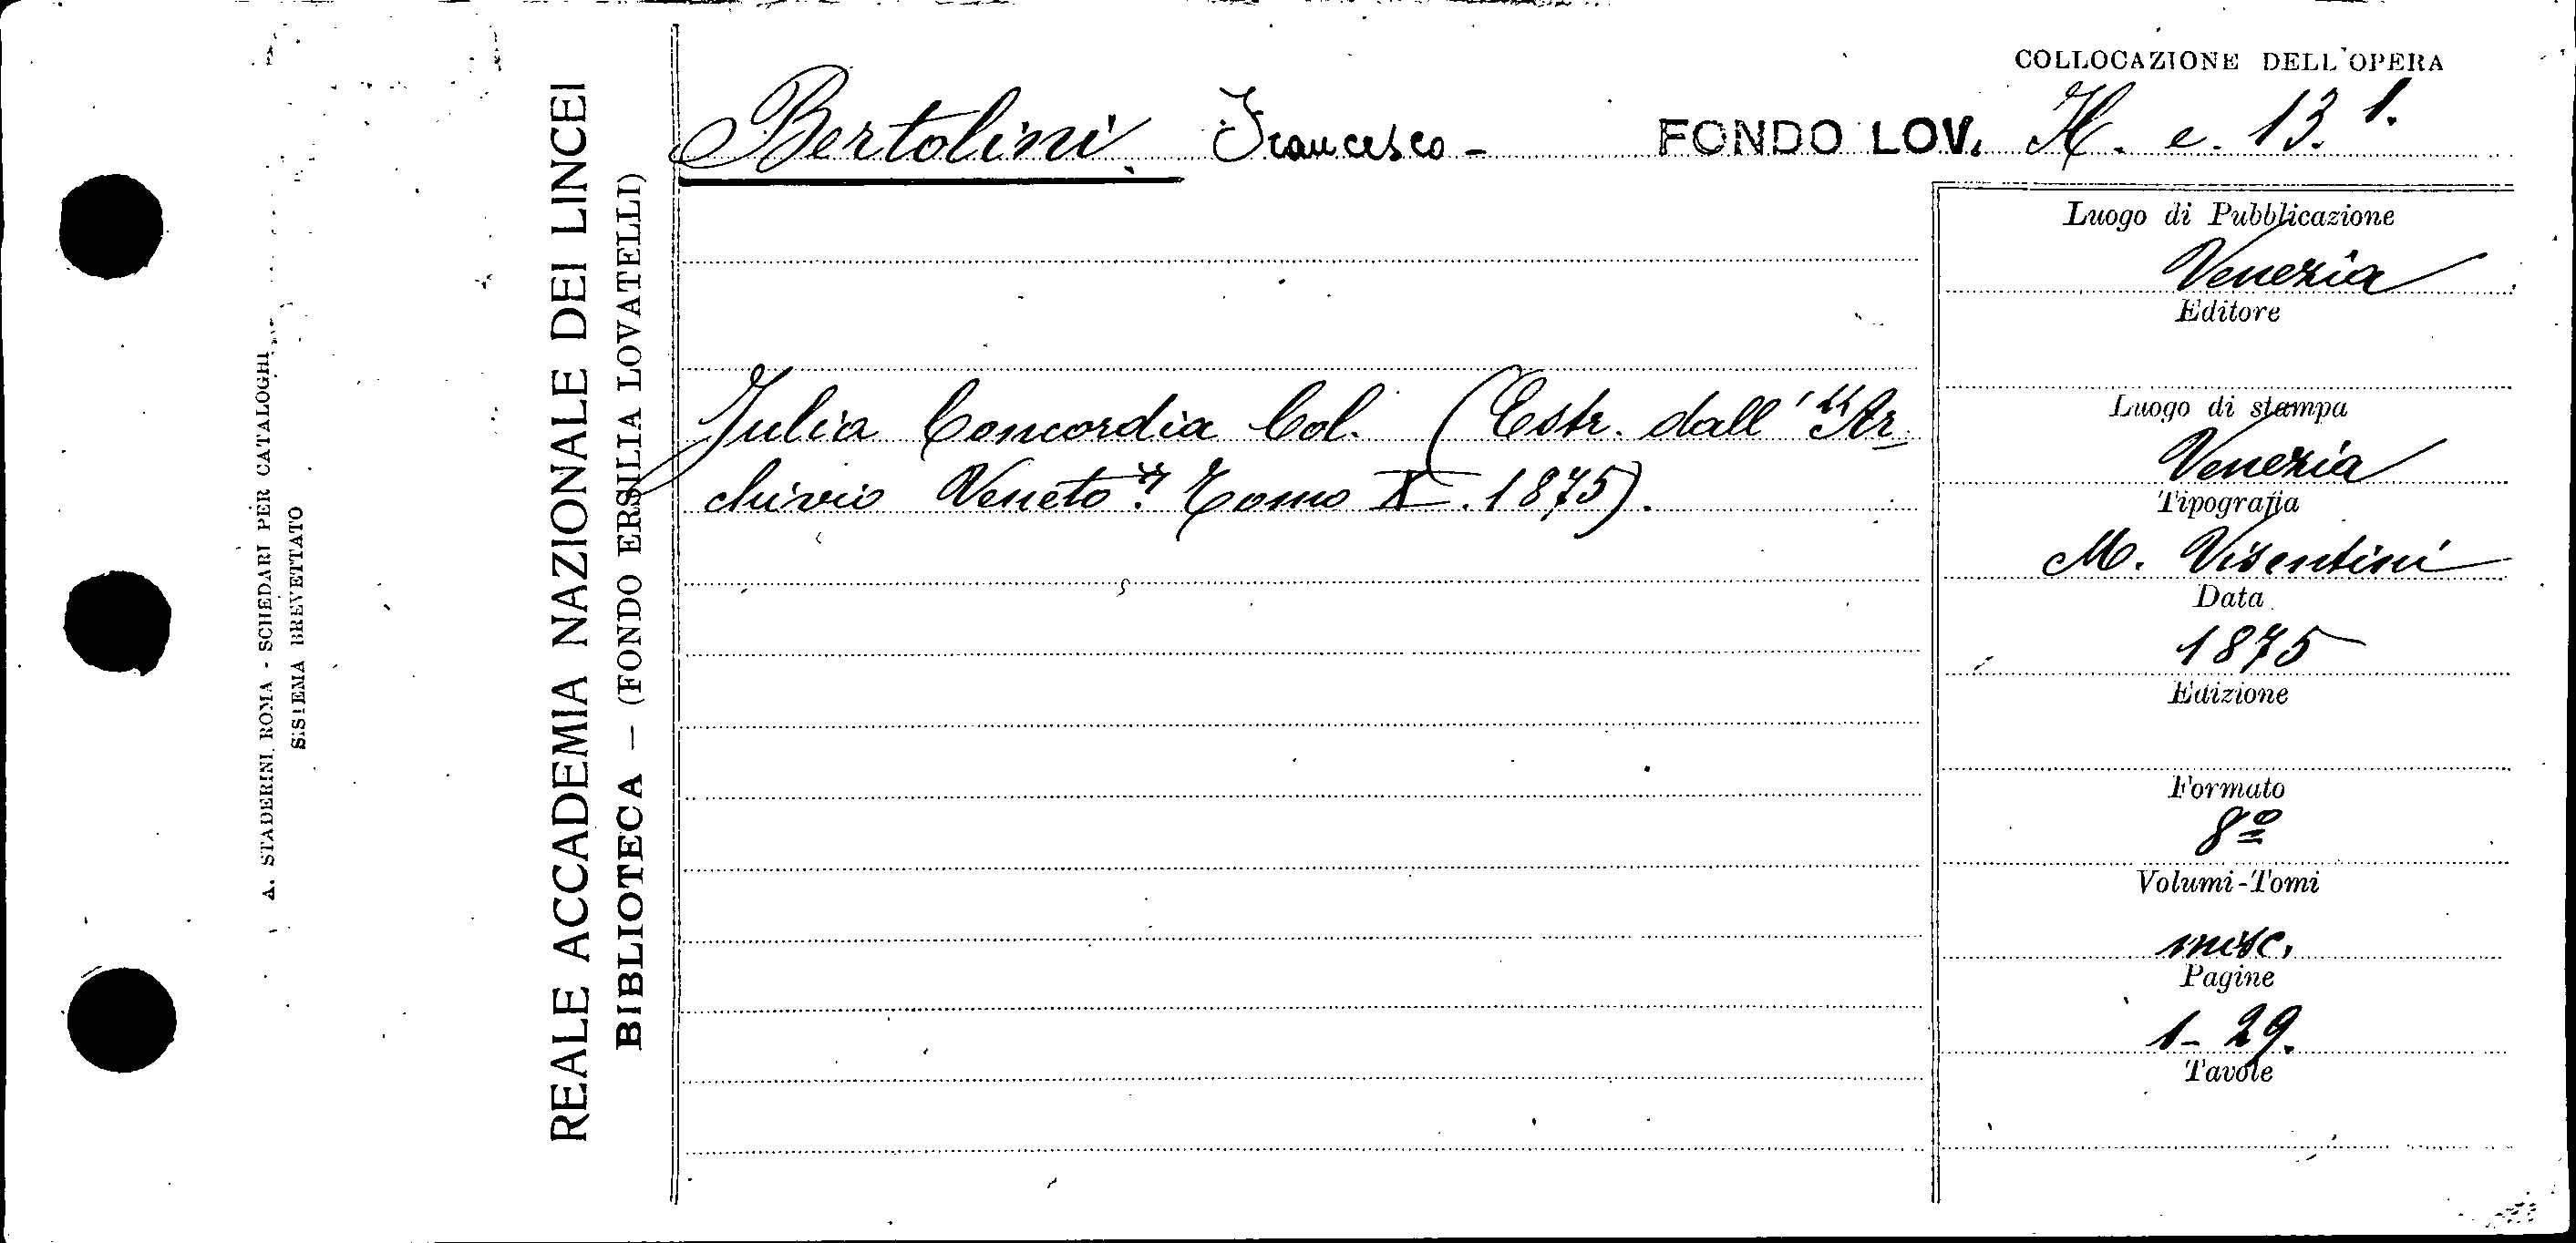 COLLOCAZIONE DELL'OPERA
Bertolini Francesco - FONDO LOV. H. e. 13. 1.
Julia Concordia Col. (Estr. dall' "Ar
chivio Veneto". Tomo X. 1875).
Luogo di Pubblicazione
Venezia
Editore
Luogo di stampa
Venezia
Tipografia
M. Visentini
Data
1875
Edizione
Formato
8º
Volumi-Tomi
misc.
Pagine
1-29.
Tavole
REALE ACCADEMIA NAZIONALE DEI LINCEI
BIBLIOTECA — (FONDO ERSILIA LOVATELLI)
A. STADERINI ROMA - SCHEDARI PER CATALOGHI
SISTEMA BREVETTATO